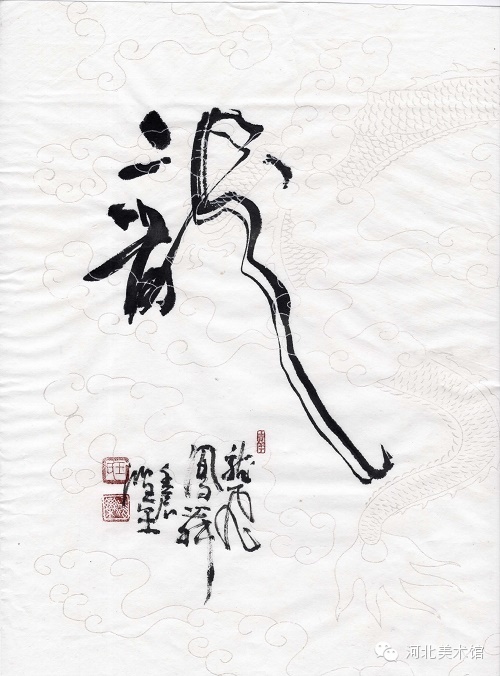 龍
龍飛
鳳舞
壬辰
河北美术馆